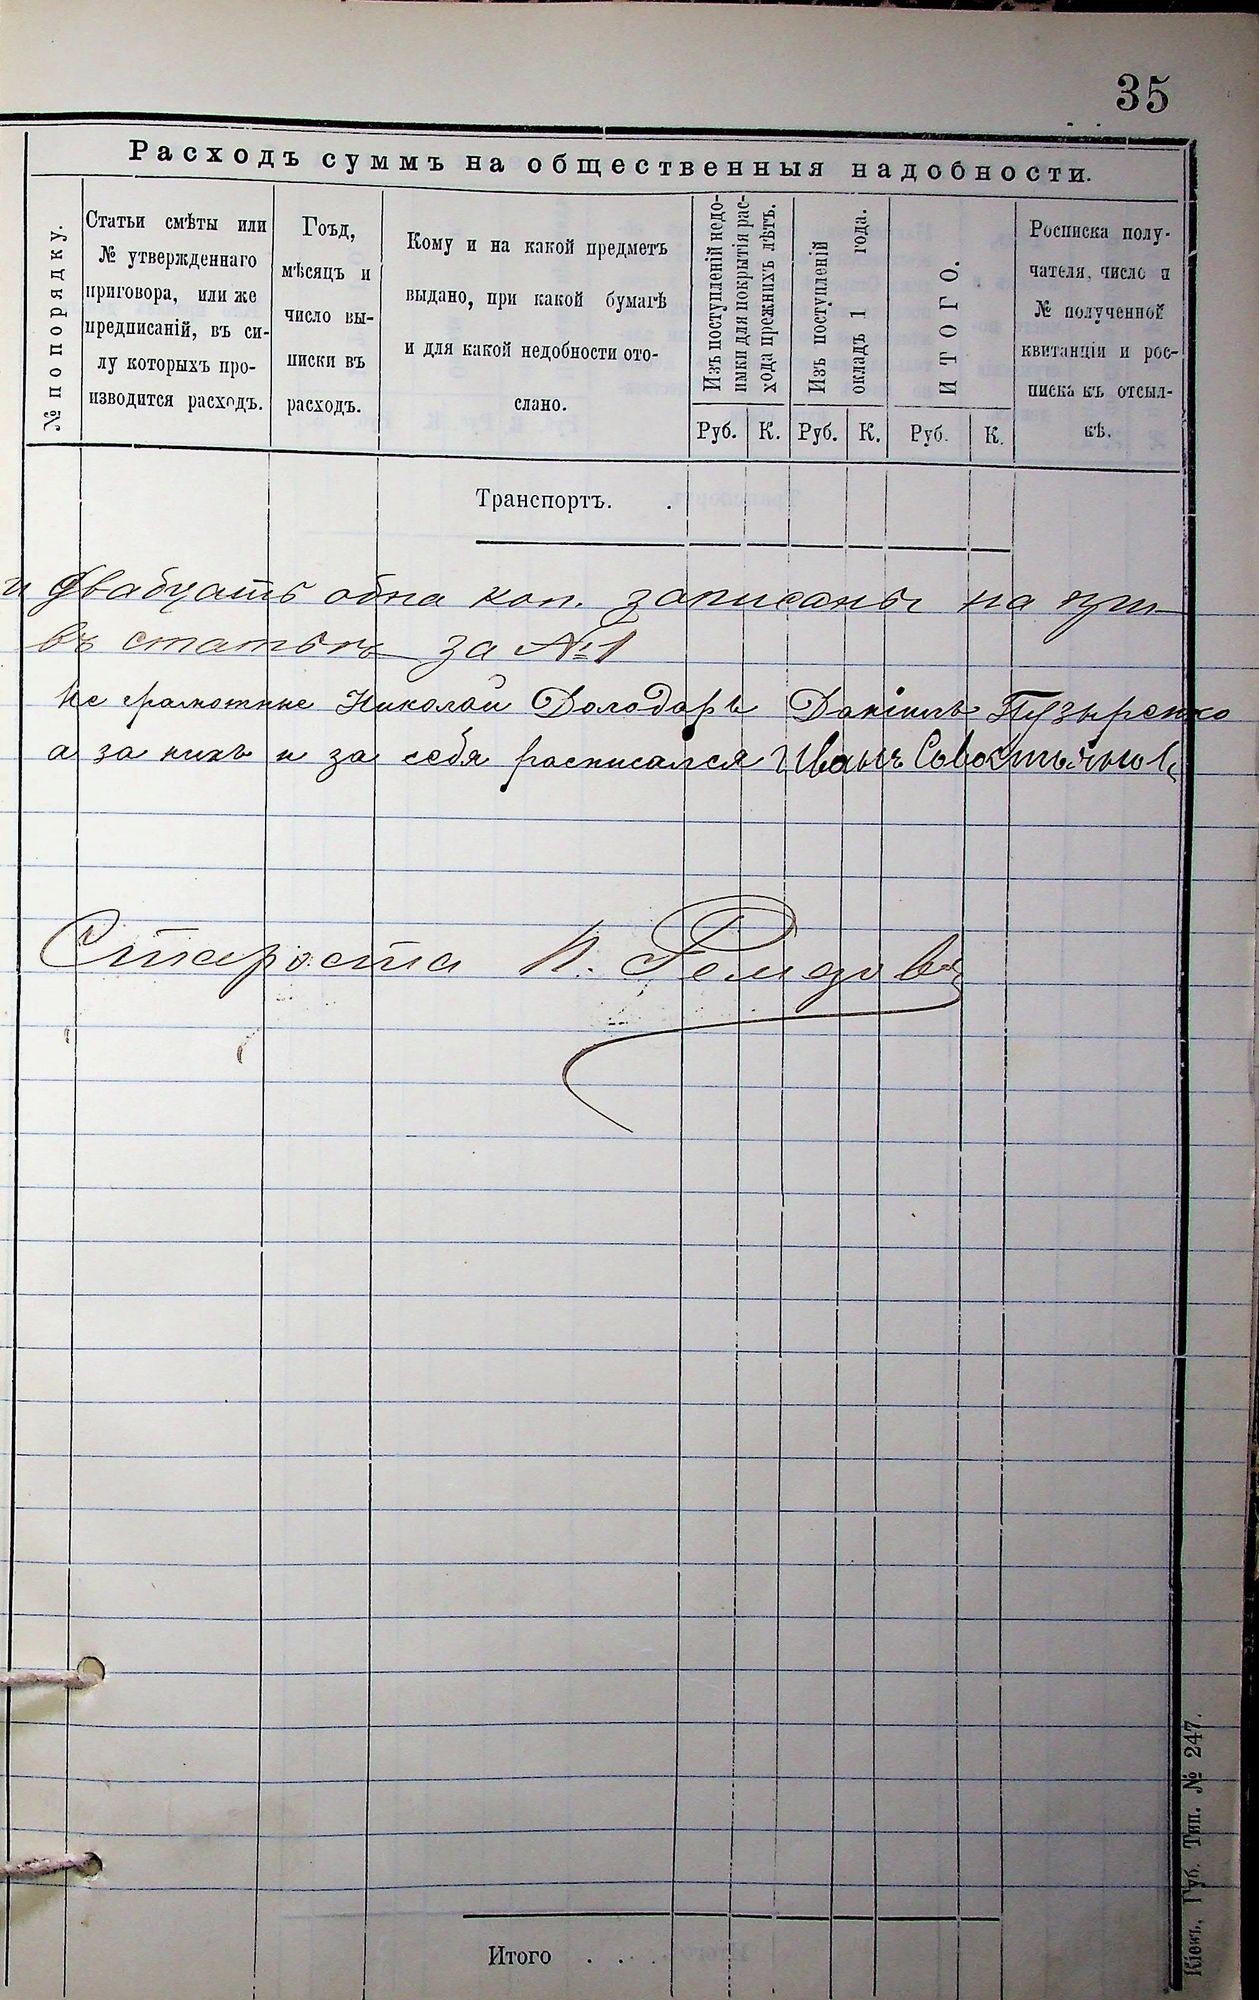 35
Расходъ суммъ на общественныя надобности.
№ по порядку.
Статьи смѣты или
№ утвержденнаго
приговора, или же
предписаній, въ си-
лу которыхъ про-
изводится расходъ.
Гоъд,
мѣсяцъ и
число вы-
писки въ
расходъ.
Кому и на какой предметъ
выдано, при какой бумагѣ
и для какой недобности ото-
слано.
Изъ поступленій недо-
имки для покрытія рас-
хода прежнихъ лѣтъ.
Изъ поступленій
окладъ 1 года.
ИТОГО.
Росписка полу-
чателя, число и
№ полученной
квитанціи и рос-
писка къ отсыл-
кѣ.
Руб. К. Руб. К. Руб. К.
Транспортъ. .
и двадцать одна коп. записаны на при-
въ статьѣ за №1
Не грамотные Николай Володарь Даніилъ Пузыренко
а за нихъ и за себя росписался Иванъ Совостьянов
Староста
Итого . . .
Кіевъ, Губ. Тип. № 247.